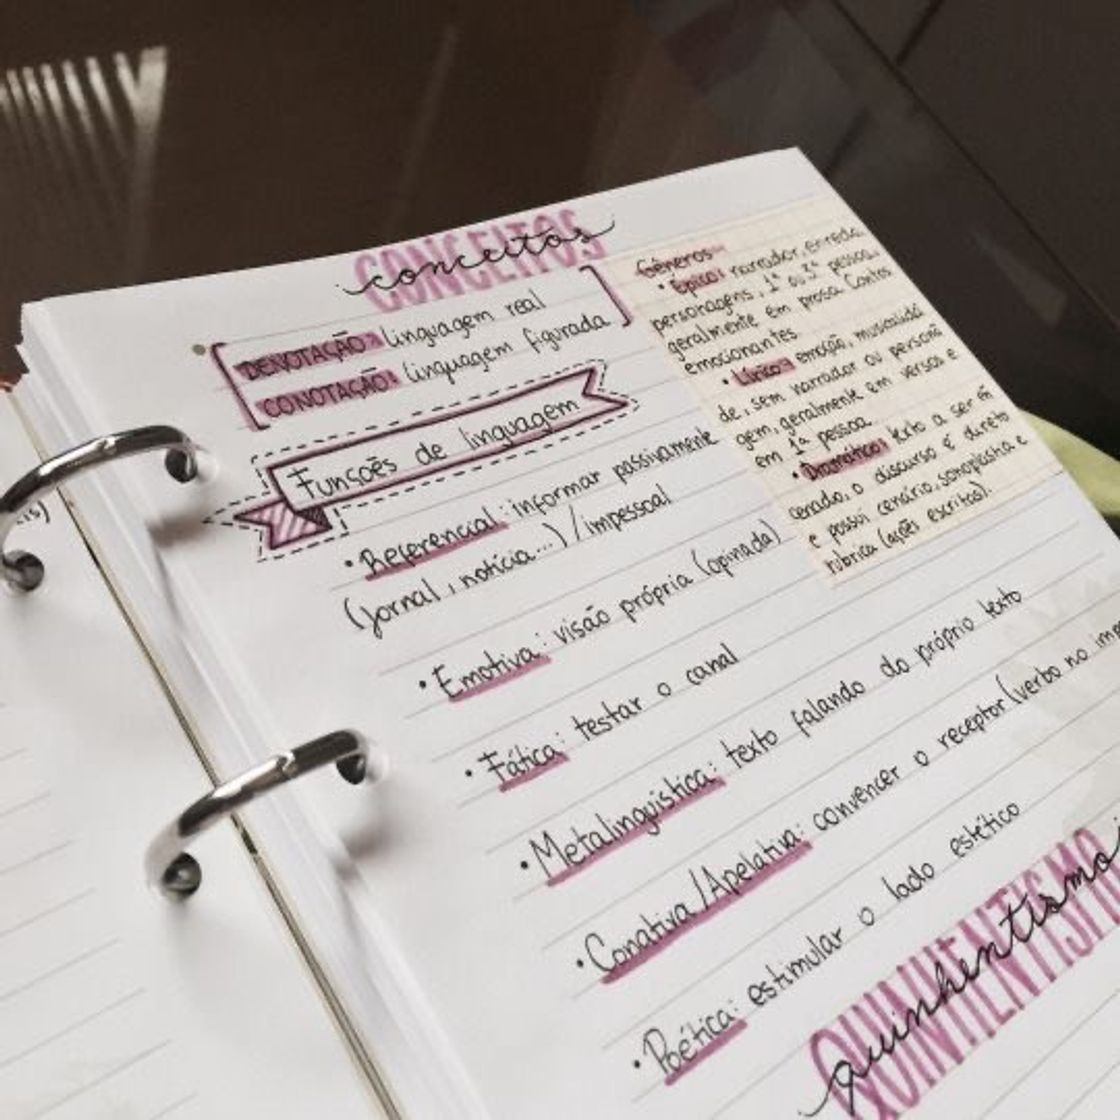 CONCEITOS
conceitos
DENOTAÇÃO: linguagem real
CONOTAÇÃO: linguagem figurada
Funções de linguagem
• Referencial: informar passivamente
(jornal, notícia...) / impessoal
• Emotiva: visão própria (opinada)
• Fática: testar o canal
• Metalinguística: texto falando do próprio texto
• Conativa/Apelativa: convencer o receptor (verbo no
• Poética: estimular o lado estético
Gêneros
• Épico: narrador, enredo,
personagens, 1ª ou 3ª pessoa,
geralmente em prosa. Contos
emocionantes
• Lírico → emoção, musicalida
de, sem narrador ou persona
gem, geralmente em versos e
em 1ª pessoa
• Dramático: texto a ser en
cenado, o discurso é direto
e possui cenário, sonoplastia e
rubrica (ações escritas).
QUINHENTISMO
quinhentismo